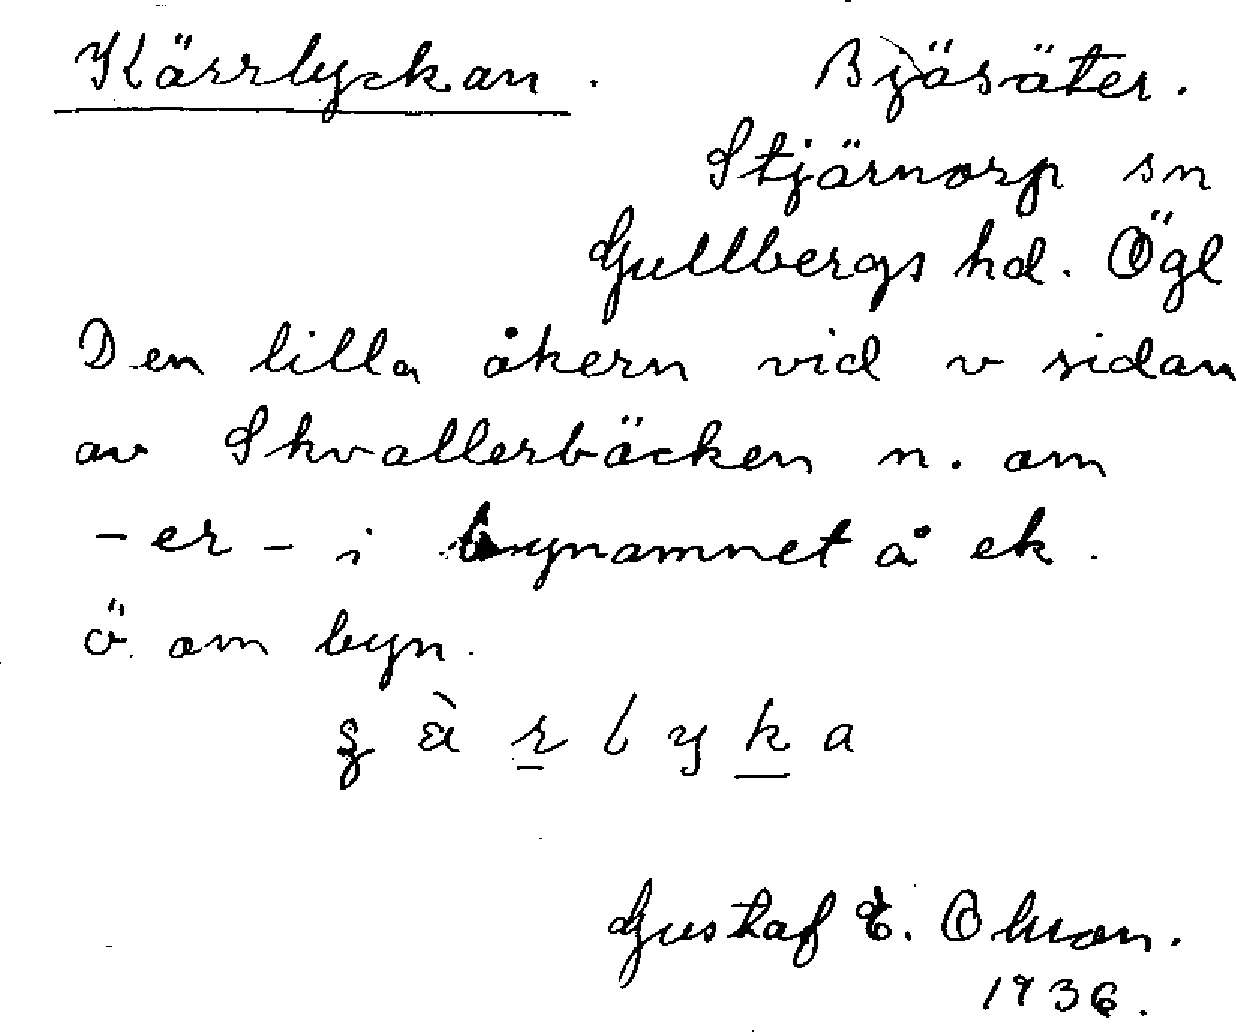 Kärrlyckan. Bjäsäter.
Stjärnorp sn
Gullbergs hd. Ögl
Den lilla åkern vid v sidan
av Skvallerbäcken n. om
-er- i bynamnet å ek.
ö. om byn.
Gustaf E. Olson.
1936.